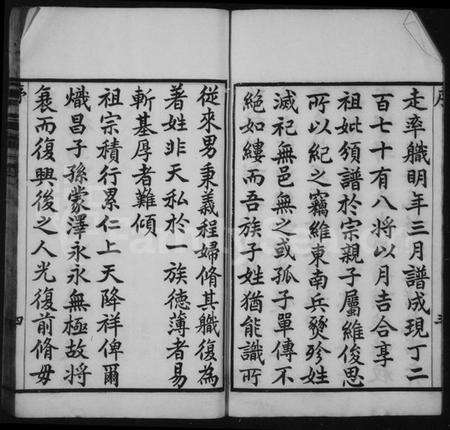 序 三
走率職明年三月譜成現丁二
百七十有八將以月吉合享
祖妣頒譜於宗親子屬維俊思
所以紀之竊維東南兵燹殄姓
滅祀無邑無之或孤子單傳不
絕如縷而吾族子姓猶能識所
從來男秉義程婦脩其職復為
著姓非天私於一族德薄者易
斬基厚者難傾
祖宗積行累仁上天降祥俾爾
熾昌子孫蒙澤永永無極故將
衰而復興後之人光復前脩毋
序 四